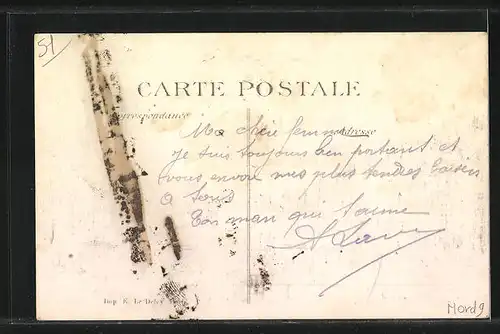 51
CARTE POSTALE
Correspondance
Adresse
Ma chère femme
je suis toujours bien portant et
vous envoie mes plus tendres baisers
a tous
Ton mari qui t'aime
Imp. E. Le Deley
Nord 9